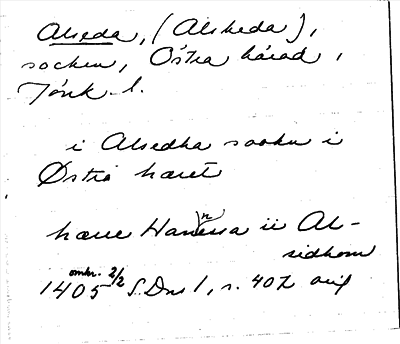 Alseda, (Alsheda),
socken, Östra härad,
Jönk. l.
i Alsedha sookn i
Østra hæret
hærre Hannessa ii Al-
sidhom
omkr. 2/2
1405 S.Dns 1, s. 402 orig